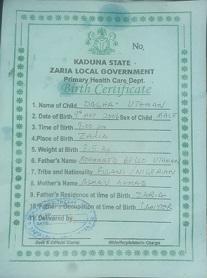 No,
KADUNA STATE
ZARIA LOCAL GOVERNMENT
Primary Health Care Dept.
Birth Certificate
1. Name of Child DAUHA- UTHMAN
2. Date of Birth Sex of Child MALE
3. Time of Birth 9:00 pm
4. Place of Birth ZARIA
5. Weight at Birth
6. Father's Name BELLO UTHMAN
7. Tribe and Nationality FULANI NIGERIAN
8. Mother's Name AHMAD
9. Father's Residence at time of Birth ZARIA
10. Father's Occupation at time of Birth
11. Delivered by
Date & Official Stamp